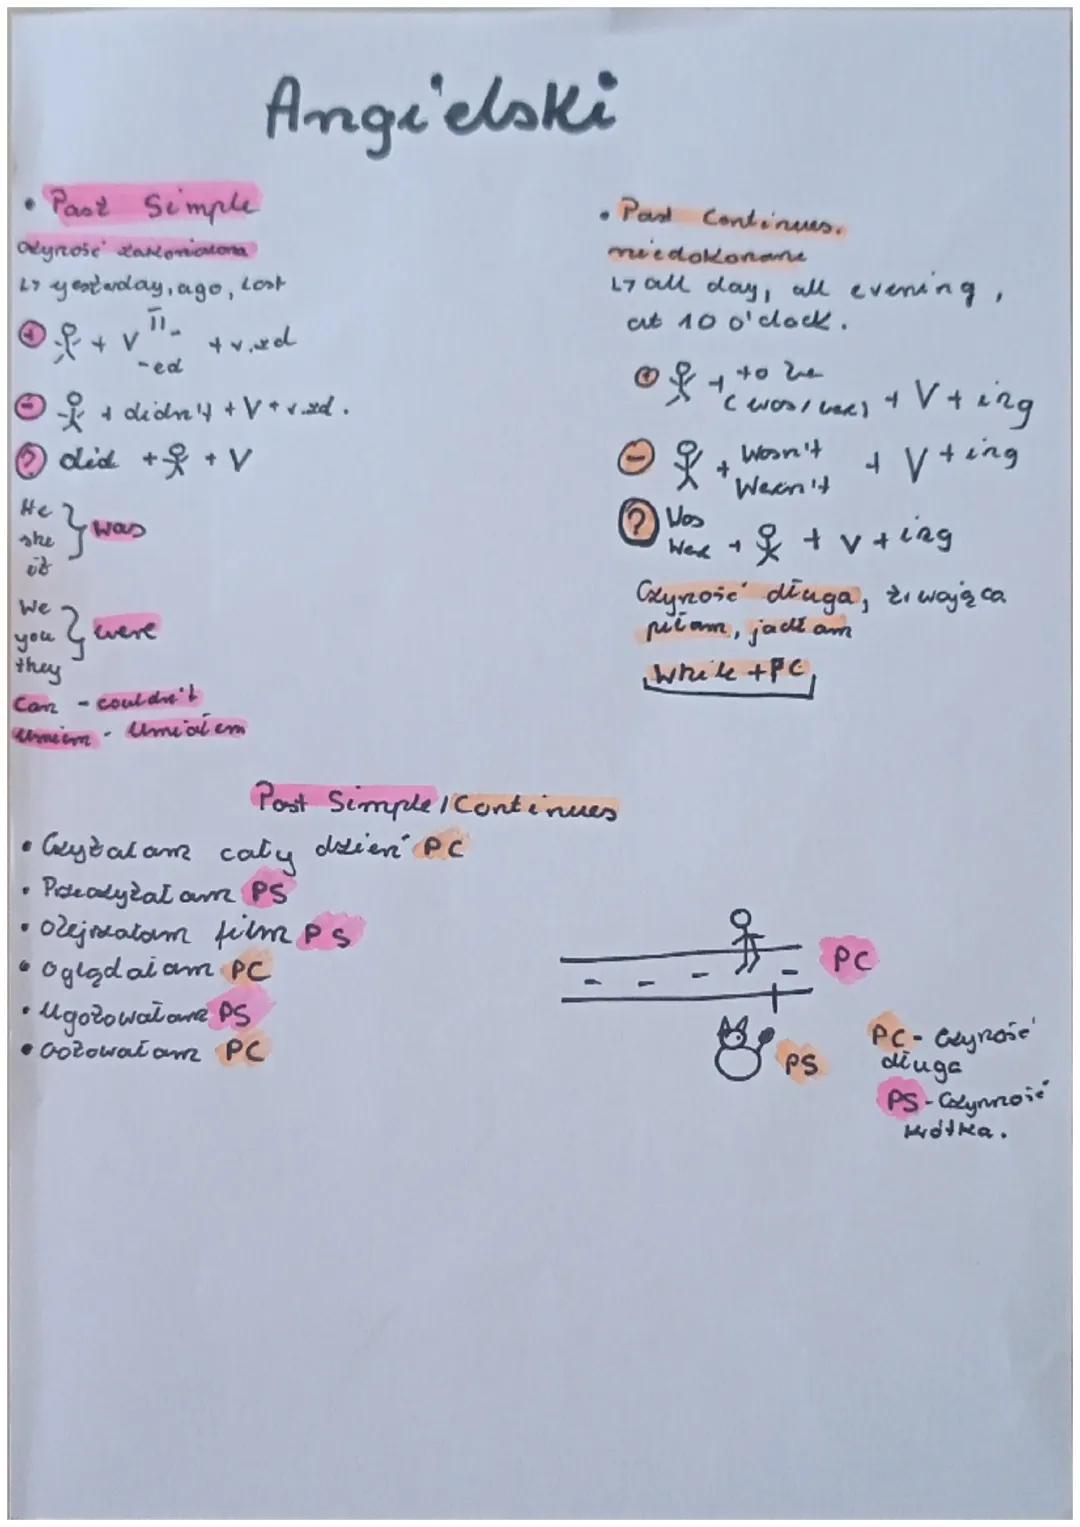 Angielski
• Past Simple
Czyność zakończona
↳ yesterday, ago, last
+ + V II - -ed + r.zd
- + didn't + V + r.zd.
? did + + V
He
she
it
was
We
you
they
were
Can - couldn't
umiem - Umiałem
• Past Continues.
niedokonane
↳ all day, all evening,
at 10 o'clock.
+ + to be (was/were) + V + ing
- + Wasn't Weren't + V + ing
? Was Were + + V + ing
Czyność długa,
piłam, jadłam
While + PC
Past Simple / Continues
• Czytałam cały dzień PC
• Przeczytałam PS
• Obejrzałam film PS
• Oglądałam PC
• Ugotowałam PS
• Gotowałam PC
PC
PS
PC - Czyność
długa
PS - Czynność
krótka.